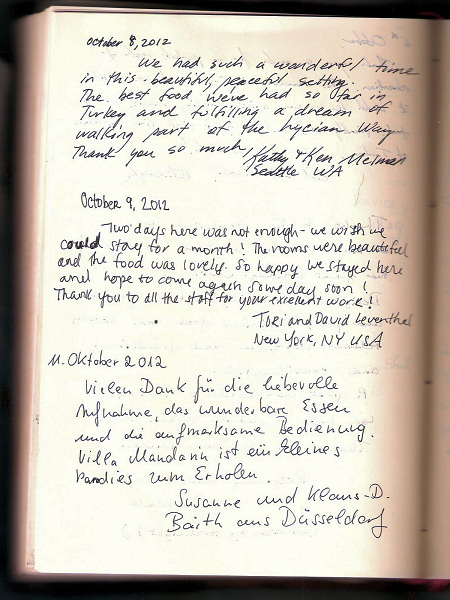 October 8, 2012
We had such a wonderful time
in this beautiful, peaceful setting.
The best food we've had so far in
Turkey and fulfilling a dream of
walking part of the Lycian Way
Thank you so much, Kathy & Ken
Seattle WA
October 9, 2012
Two days here was not enough - we wish we
could stay for a month! The rooms were beautiful
and the food was lovely. So happy we stayed here
and hope to come again some day soon!
Thank you to all the staff for your excellent work!
Tori and David Leventhal
New York, NY USA
11. Oktober 2012
Vielen Dank für die liebevolle
Aufnahme, das wunderbare Essen
und die aufmerksame Bedienung.
Villa Mandarin ist ein kleines
Paradies zum Erholen.
Susanne und Klaus-D.
Barth aus Düsseldorf